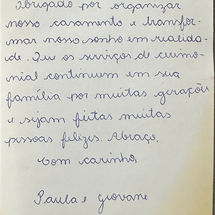 Obrigado por organizar
nosso casamento e transfor-
mar nosso sonho em realida-
de. Que os serviços de cerimo-
nial continuem em sua
família por muitas gerações
e sejam feitas muitas
pessoas felizes. Abraço,
Com carinho,
Paula e Giovane